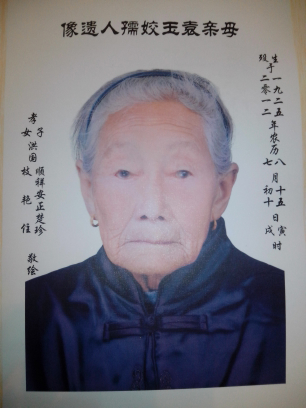 母亲袁玉姣孺人遗像
生于一九二五年农历八月十五日寅时
殁二零一二七初十戌
孝子洪国顺祥安正楚珍
女枝艳佳
敬绘